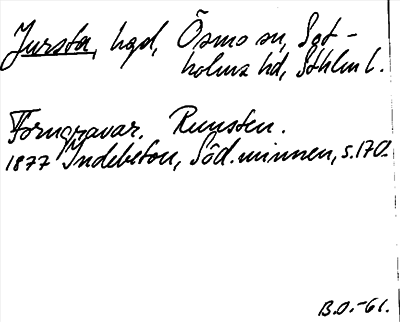 Jursta, hgd, Ösmo sn, Sot-
holms hd, Sthlm l.
Forngravar. Runsten.
1877 Indebetou, Söd. minnen, s. 170.
B.O.-61.